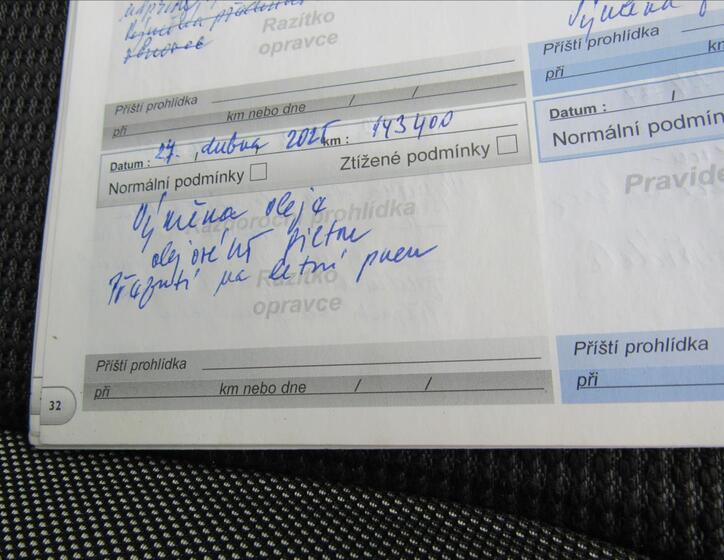 Razítko
opravce
Výměna
Příští prohlídka
při km nebo dne / /
Datum : 27. dubna 2025 km : 143 400
Normální podmínky Ztížené podmínky
Každoroční prohlídka
Razítko
opravce
Výměna oleje
olejové filtru
Přezutí na letní pneu
Příští prohlídka
při km nebo dne / /
32
Příští prohlídka
při km
Datum : /
Normální podmín
Pravide
Příští prohlídka
při